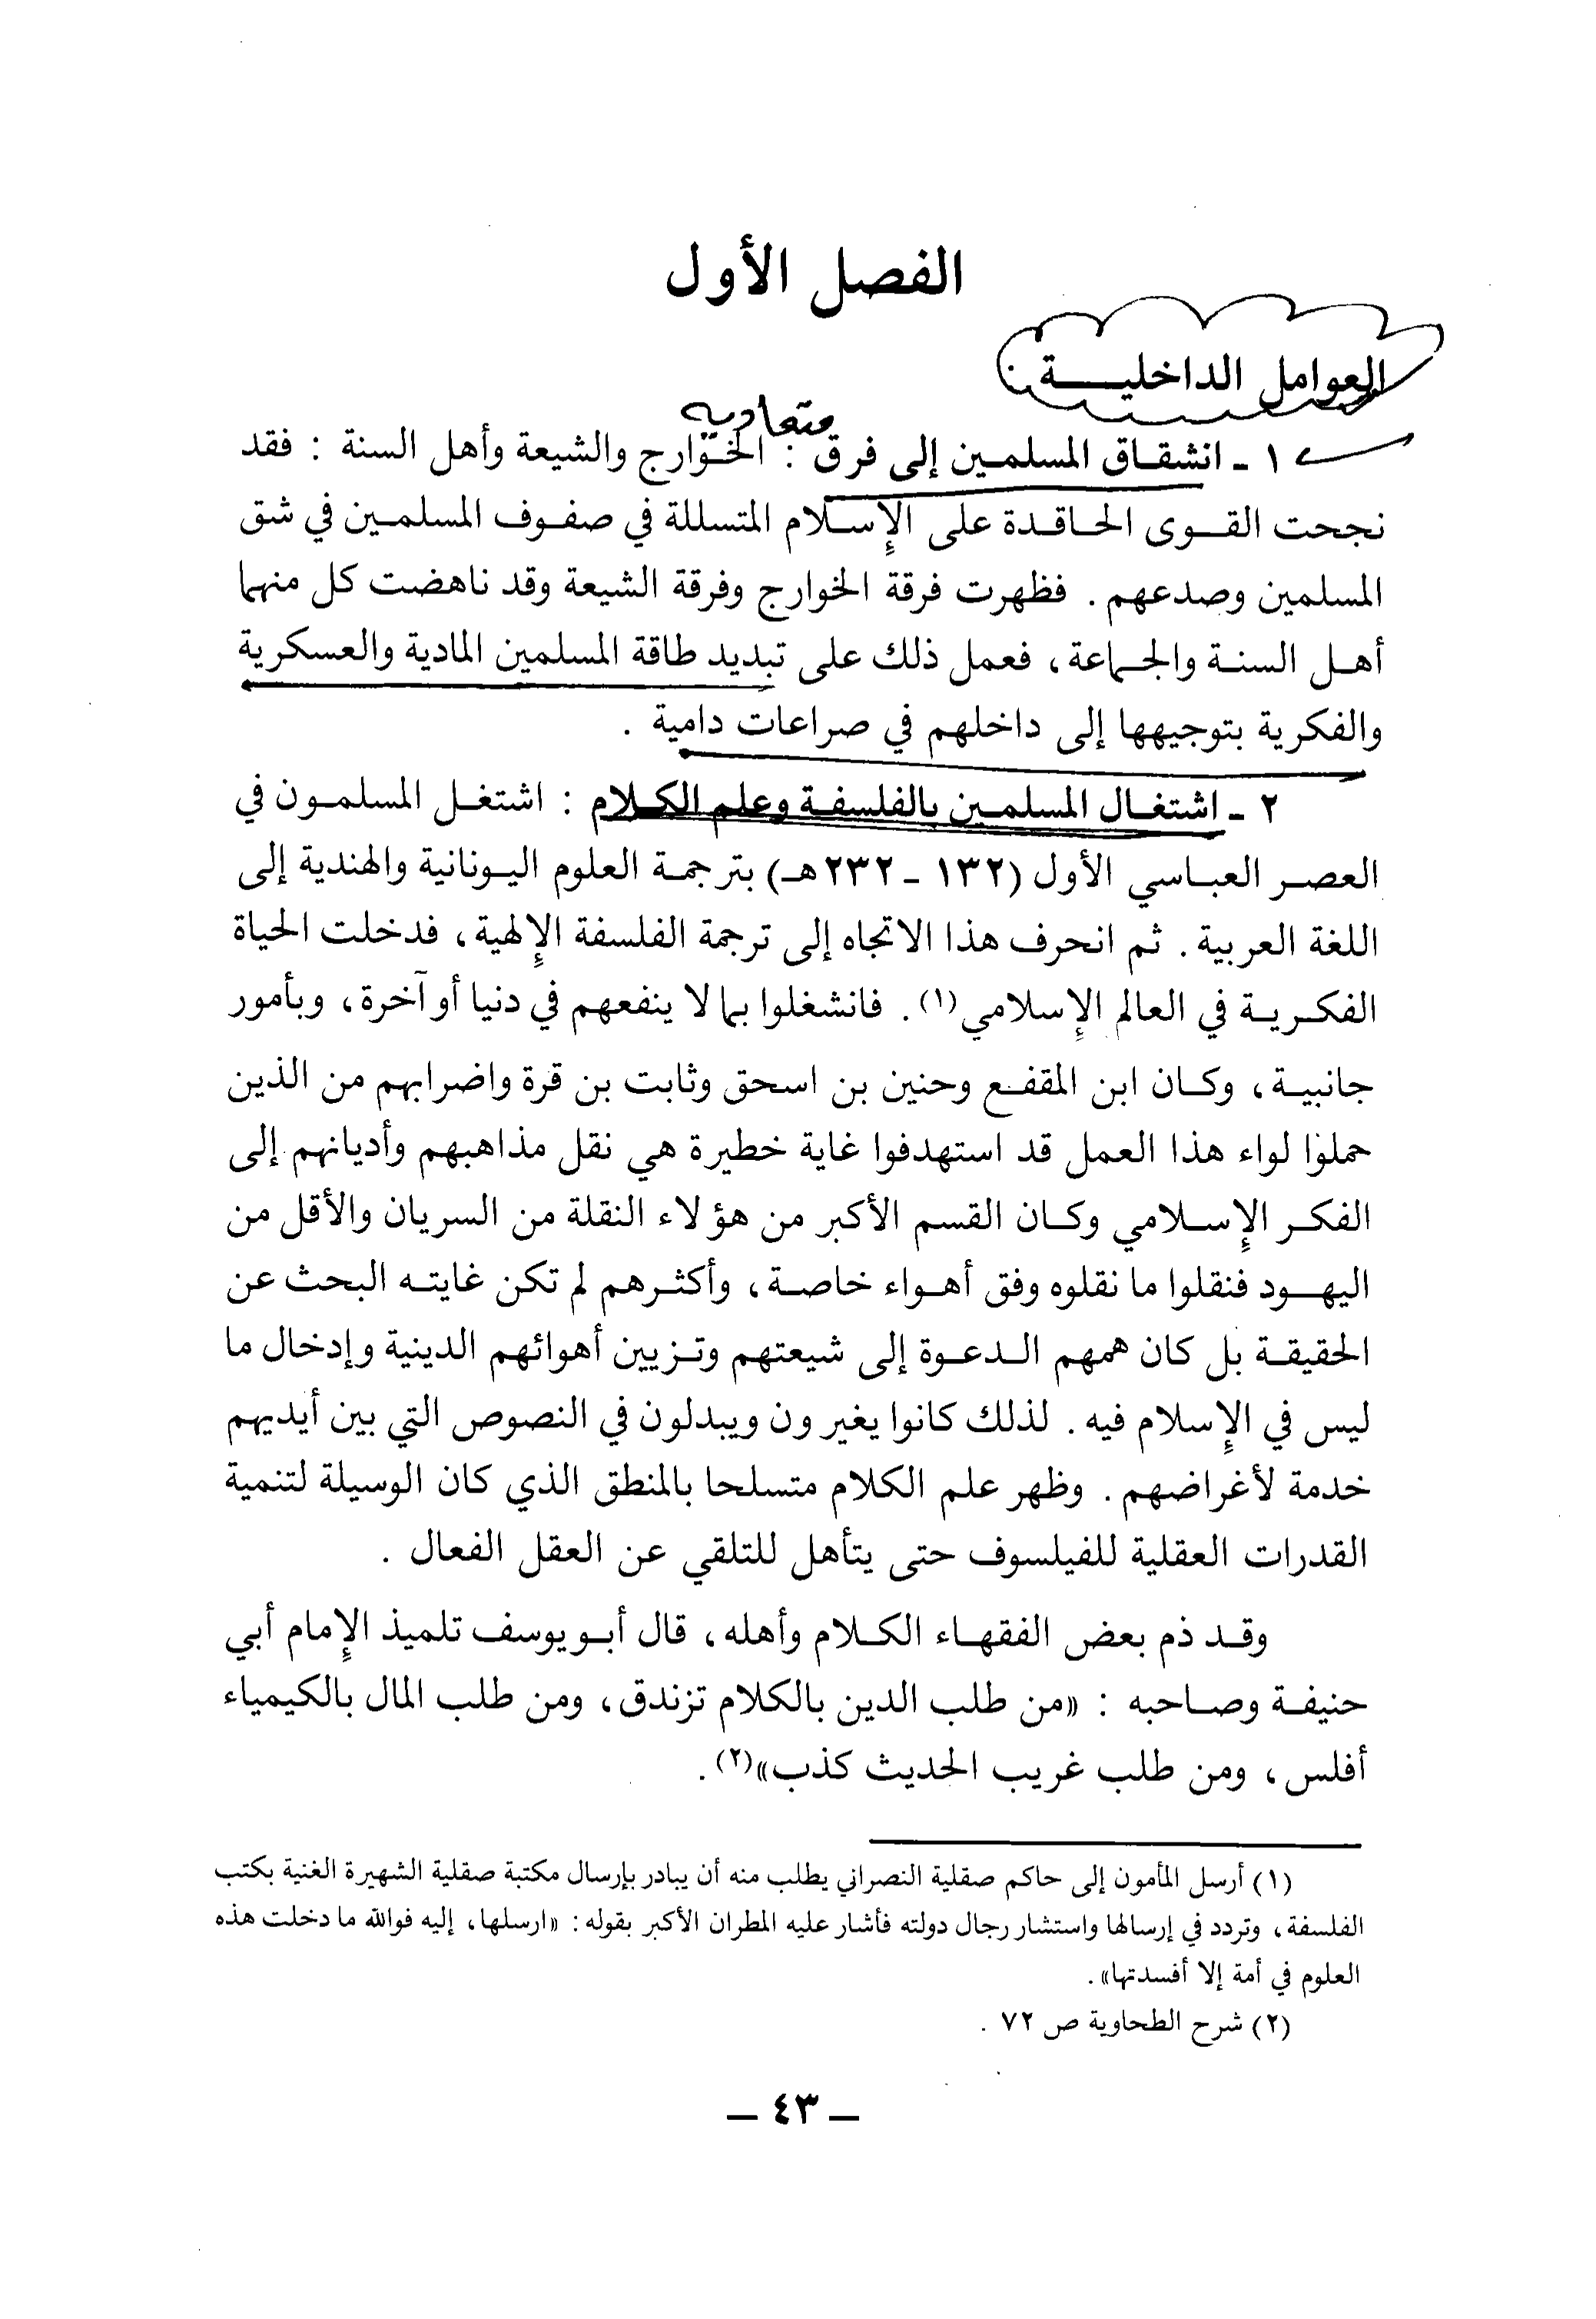 الفصل الأول
العوامل الداخليـــة :
متعاديه
١ - انشقاق المسلمين إلى فرق : الخوارج والشيعة وأهل السنة : فقد
نجحت القوى الحاقدة على الإسلام المتسللة في صفوف المسلمين في شق
المسلمين وصدعهم . فظهرت فرقة الخوارج وفرقة الشيعة وقد ناهضت كل منهما
أهل السنة والجماعة ، فعمل ذلك على تبديد طاقة المسلمين المادية والعسكرية
والفكرية بتوجيهها إلى داخلهم في صراعات دامية .
٢ - اشتغال المسلمين بالفلسفة وعلم الكلام : اشتغل المسلمون في
العصر العباسي الأول (١٣٢ - ٢٣٢ هـ) بترجمة العلوم اليونانية والهندية إلى
اللغة العربية . ثم انحرف هذا الاتجاه إلى ترجمة الفلسفة الإلهية ، فدخلت الحياة
الفكرية في العالم الإسلامي(١) . فانشغلوا بما لا ينفعهم في دنيا أو آخرة ، وبأمور
جانبية ، وكان ابن المقفع وحنين بن اسحق وثابت بن قرة واضرابهم من الذين
حملوا لواء هذا العمل قد استهدفوا غاية خطيرة هي نقل مذاهبهم وأديانهم إلى
الفكر الإسلامي وكان القسم الأكبر من هؤلاء النقلة من السريان والأقل من
اليهود فنقلوا ما نقلوه وفق أهواء خاصة ، وأكثرهم لم تكن غايته البحث عن
الحقيقة بل كان همهم الدعوة إلى شيعتهم وتزيين أهوائهم الدينية وإدخال ما
ليس في الإسلام فيه . لذلك كانوا يغيرون ويبدلون في النصوص التي بين أيديهم
خدمة لأغراضهم . وظهر علم الكلام متسلحا بالمنطق الذي كان الوسيلة لتنمية
القدرات العقلية للفيلسوف حتى يتأهل للتلقي عن العقل الفعال .
وقد ذم بعض الفقهاء الكلام وأهله ، قال أبو يوسف تلميذ الإمام أبي
حنيفة وصاحبه : «من طلب الدين بالكلام تزندق ، ومن طلب المال بالكيمياء
أفلس ، ومن طلب غريب الحديث كذب»(٢) .
(١) أرسل المأمون إلى حاكم صقلية النصراني يطلب منه أن يبادر بإرسال مكتبة صقلية الشهيرة الغنية بكتب
الفلسفة ، وتردد في إرسالها واستشار رجال دولته فأشار عليه المطران الأكبر بقوله : «ارسلها ، إليه فوالله ما دخلت هذه
العلوم في أمة إلا أفسدتها» .
(٢) شرح الطحاوية ص ٧٢ .
- ٤٣ -